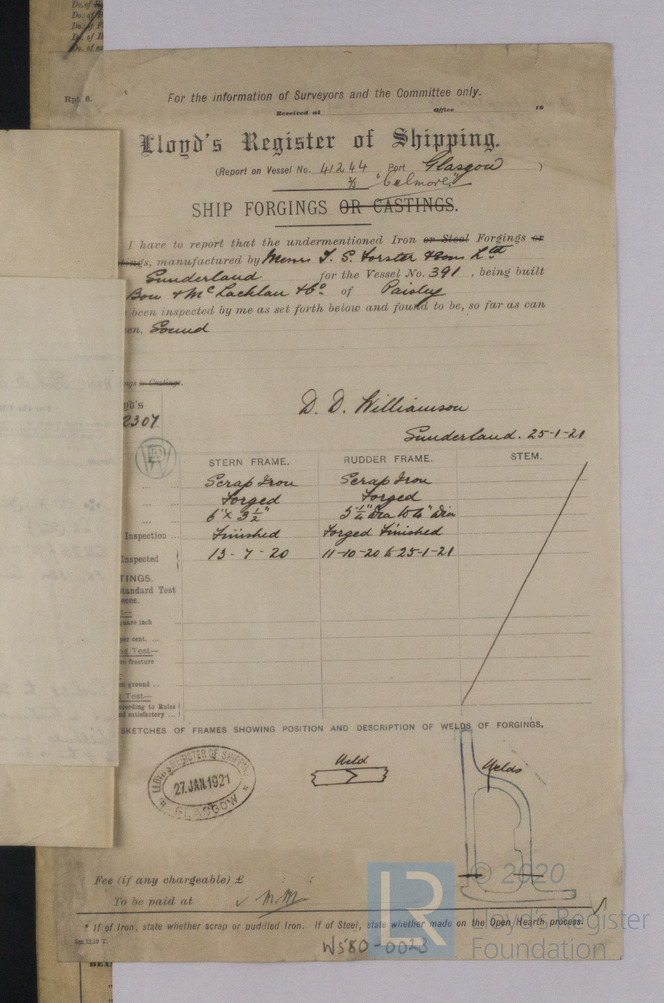 Do. of
Do. of
Do. of
Do. of
Do. of
Rpt. 6.
For the information of Surveyors and the Committee only.
Received at Office 19
Lloyd's Register of Shipping.
(Report on Vessel No. 41244 Port Glasgow )
S/S "Belmore"
SHIP FORGINGS OR CASTINGS.
I have to report that the undermentioned Iron or Steel Forgings or
ings, manufactured by Messrs T. S. Forster & Sons Ltd
Sunderland for the Vessel No. 391, being built
Bow & McLachlan & Co. of Paisley
been inspected by me as set forth below and found to be, so far as can
en, Sound
ngs or Castings.
yd's
2307
D. D. Williamson
Sunderland. 25-1-21
STERN FRAME. RUDDER FRAME. STEM.
Scrap Iron Scrap Iron
Forged Forged
6" x 3½" 5¼" Dia to 4" Dia
Inspection ... Finished Forged Finished
Inspected 13-7-20 11-10-20 to 25-1-21
TINGS.
tandard Test
eces.
uare inch
per cent. ...
ng Test—
re fracture
on ground ...
g Test—
according to Rules
nd satisfactory ...
SKETCHES OF FRAMES SHOWING POSITION AND DESCRIPTION OF WELDS OF FORGINGS.
LLOYD'S REGISTER OF SHIPPING
27.JAN.1921
GLASGOW
Weld
Welds
Fee (if any chargeable) £ : :
To be paid at
* If of Iron, state whether scrap or puddled Iron. If of Steel, state whether made on the Open Hearth process.
W580-0023
LR
© 2020
Lloyd's Register
Foundation